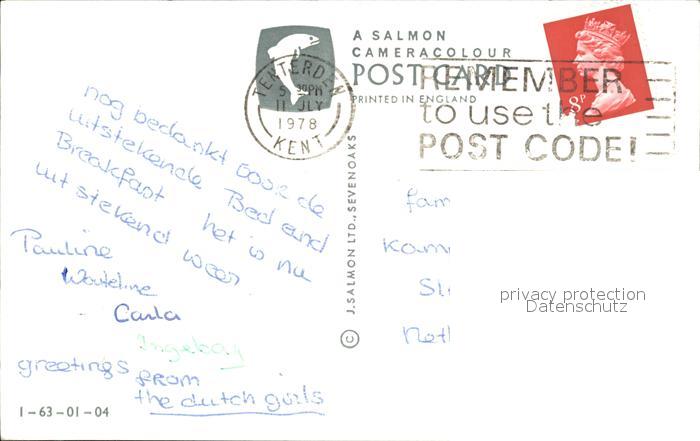 A SALMON
CAMERACOLOUR
POST CARD
PRINTED IN ENGLAND
TENTERDEN
5 30PM
11 JLY
1978
KENT
REMEMBER
to use the
POST CODE!
8P
nog bedankt voor de
uitstekende Bed and
Breakfast het is nu
uitstekend weer
Pauline
Wouteline
Carla
Ingeborg
greetings from
the dutch girls
1-63-01-04
© J. SALMON LTD., SEVENOAKS
fam
Kam
Sl
Netl
privacy protection
Datenschutz